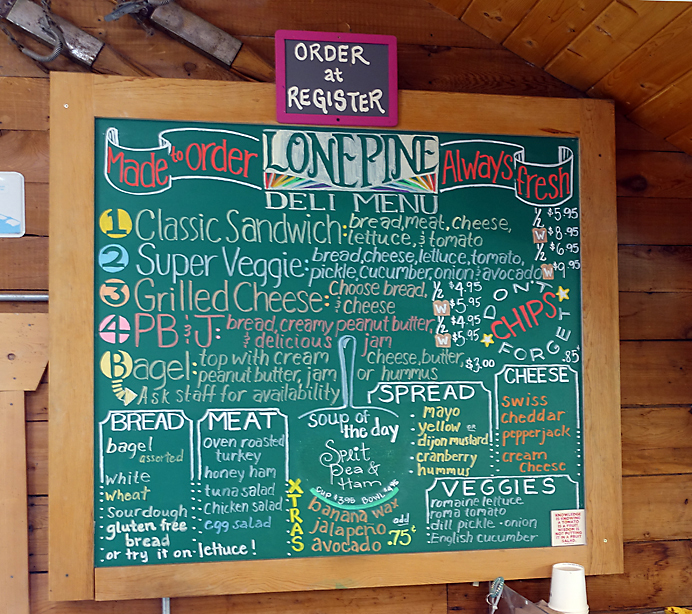 ORDER
at
REGISTER
Made to order
LONEPINE
Always fresh
DELI MENU
1 Classic Sandwich: bread, meat, cheese,
lettuce, & tomato
½ $5.95
W $8.95
2 Super Veggie: bread, cheese, lettuce, tomato,
pickle, cucumber, onion & avocado
½ $6.95
W $9.95
3 Grilled Cheese: Choose bread,
& cheese
½ $4.95
W $5.95
4 PB & J: bread, creamy peanut butter,
& delicious jam
½ $4.95
W $5.95
DON'T
CHIPS
FORGET
.85¢
B Bagel: top with cream cheese, butter,
peanut butter, jam or hummus
$3.00
Ask staff for availability
BREAD
bagel
assorted
white
wheat
Sourdough
gluten free
bread
or try it on lettuce!
MEAT
oven roasted
turkey
honey ham
tuna salad
Chicken salad
egg salad
soup of
the day
Split
Pea &
Ham
CUP $3.95 BOWL $4.95
XTRAS
banana wax
jalapeño
avocado
add
.75¢
SPREAD
mayo
yellow or
dijon mustard
cranberry
hummus
CHEESE
swiss
cheddar
pepperjack
cream
cheese
VEGGIES
romaine lettuce
roma tomato
dill pickle - onion
English cucumber
KNOWLEDGE
IS KNOWING
A TOMATO
IS A FRUIT.
WISDOM IS
NOT PUTTING
IT IN A FRUIT
SALAD.